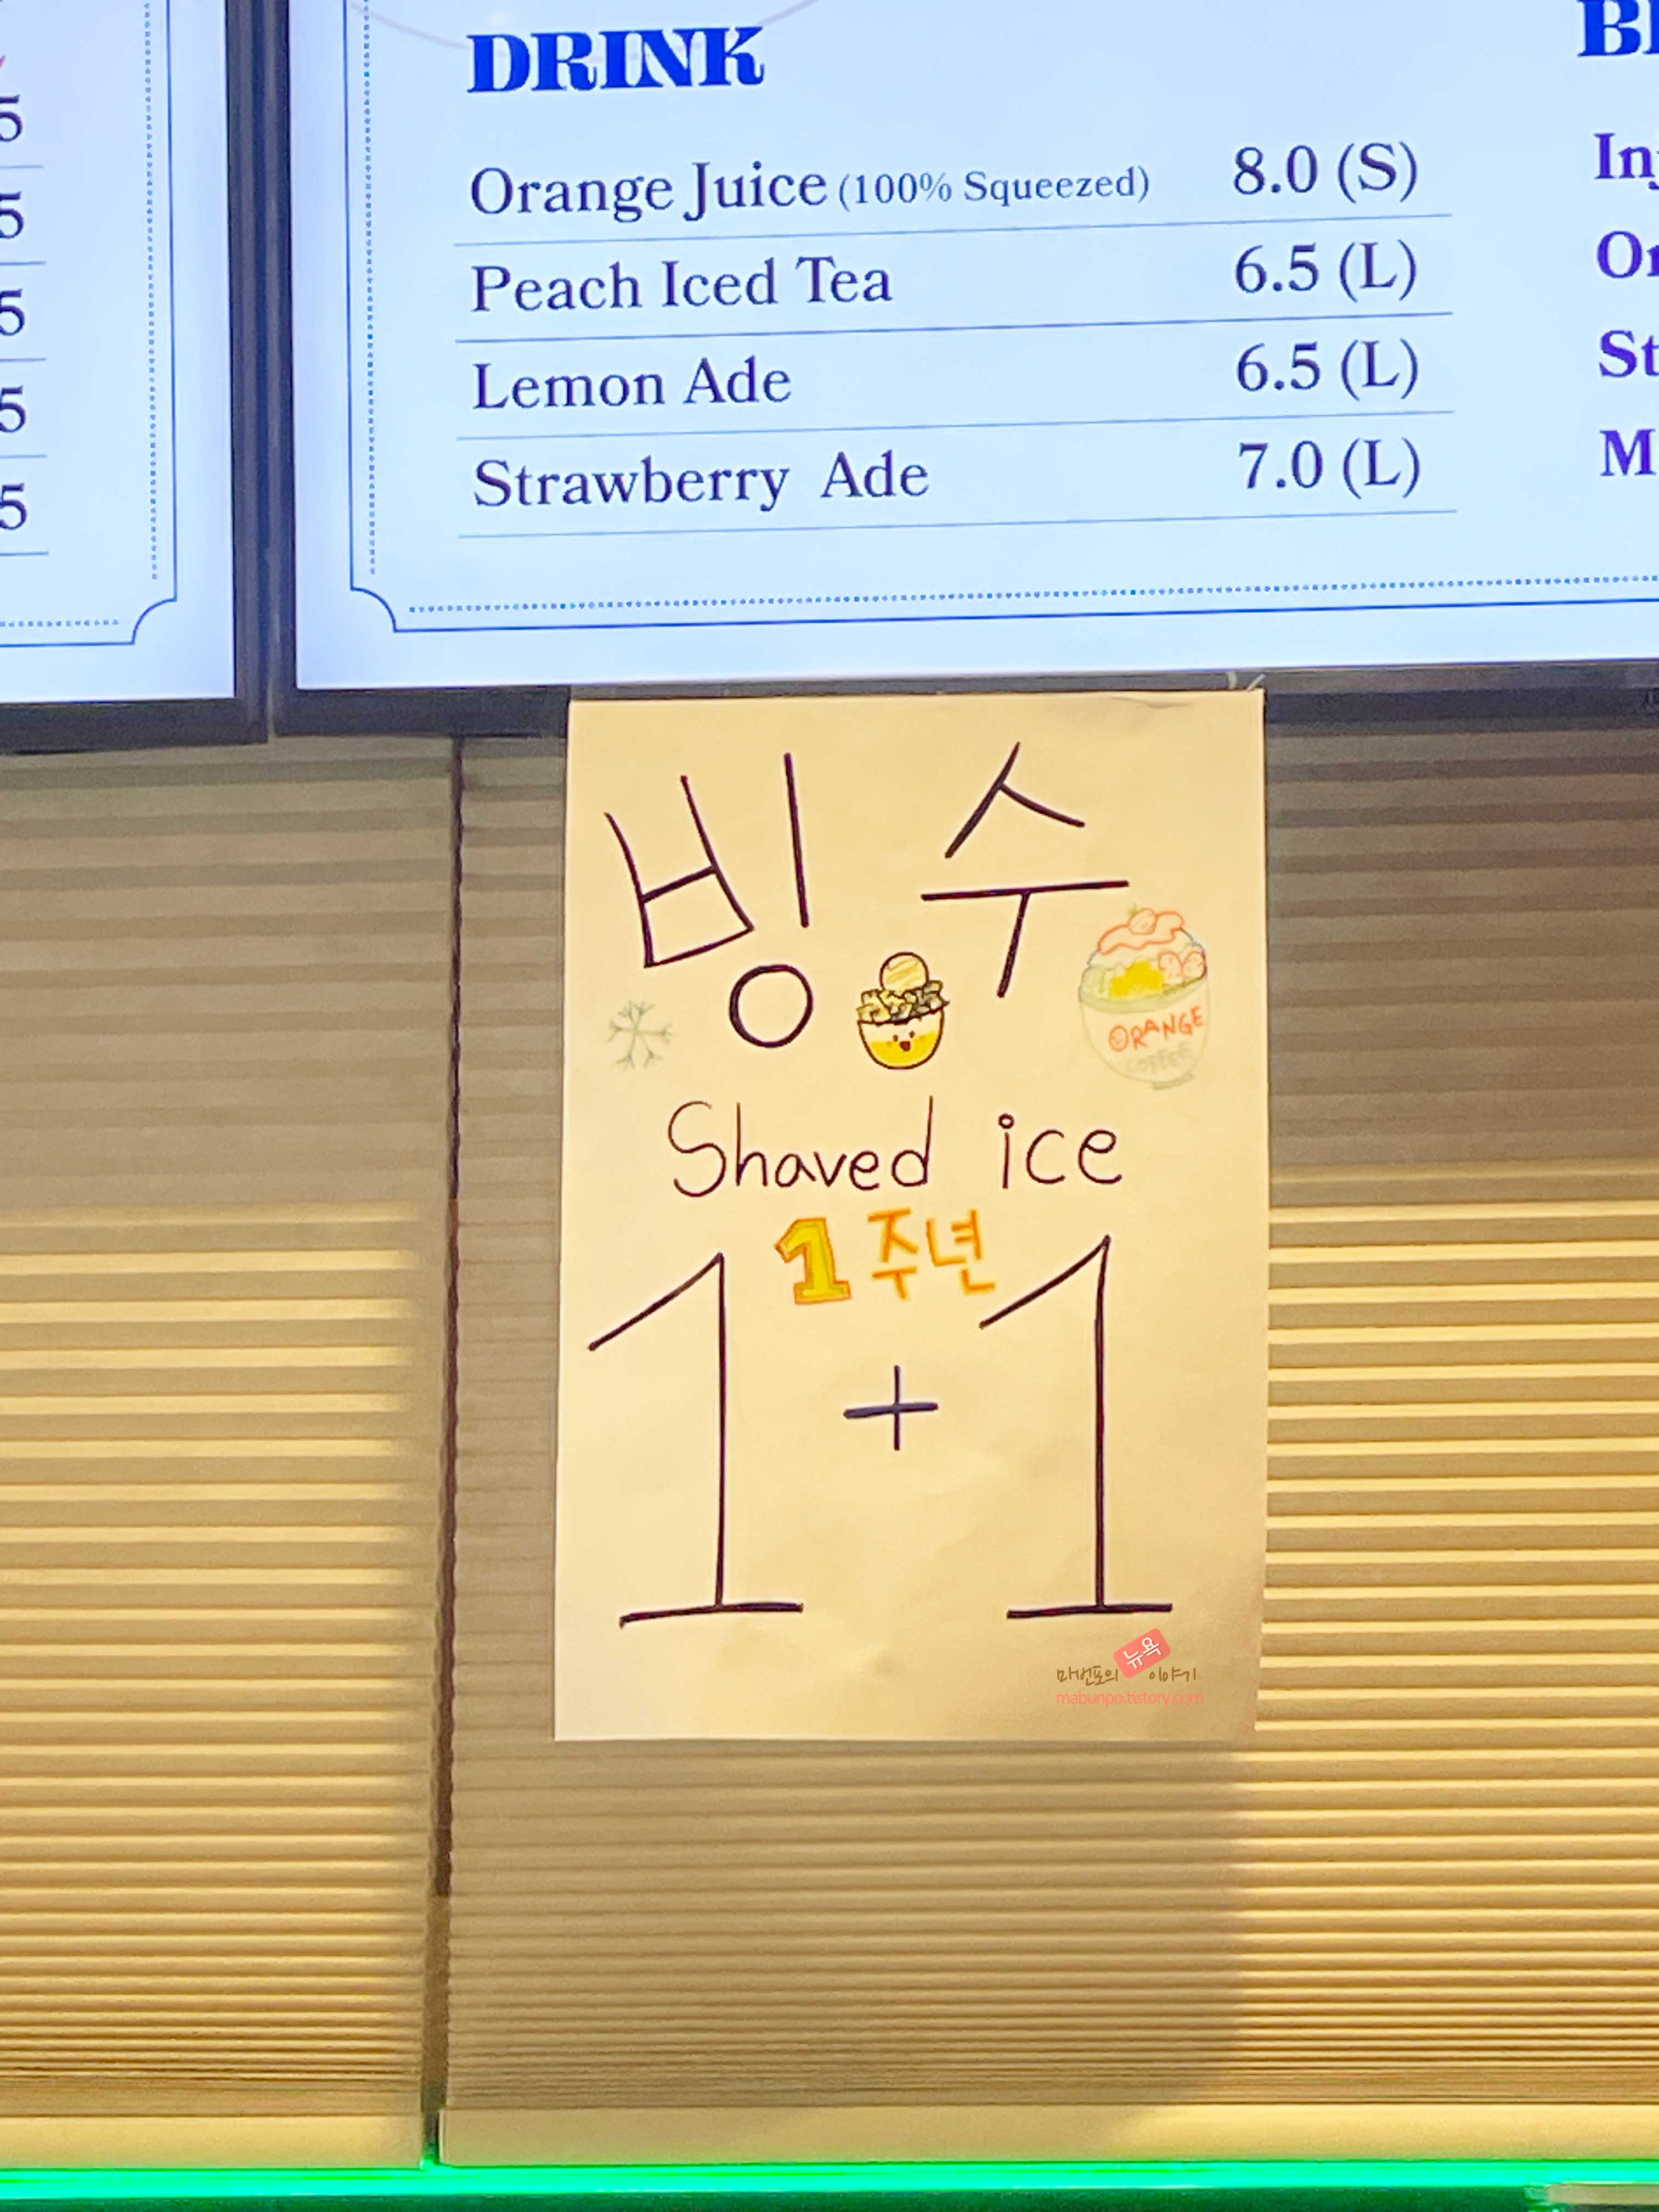 DRINK
Orange Juice (100% Squeezed) 8.0 (S)
Peach Iced Tea 6.5 (L)
Lemon Ade 6.5 (L)
Strawberry Ade 7.0 (L)
5
5
5
5
5
빙수
ORANGE
COFFEE
Shaved ice
1주년
1 + 1
마번포의 뉴욕 이야기
mabunpo.tistory.com